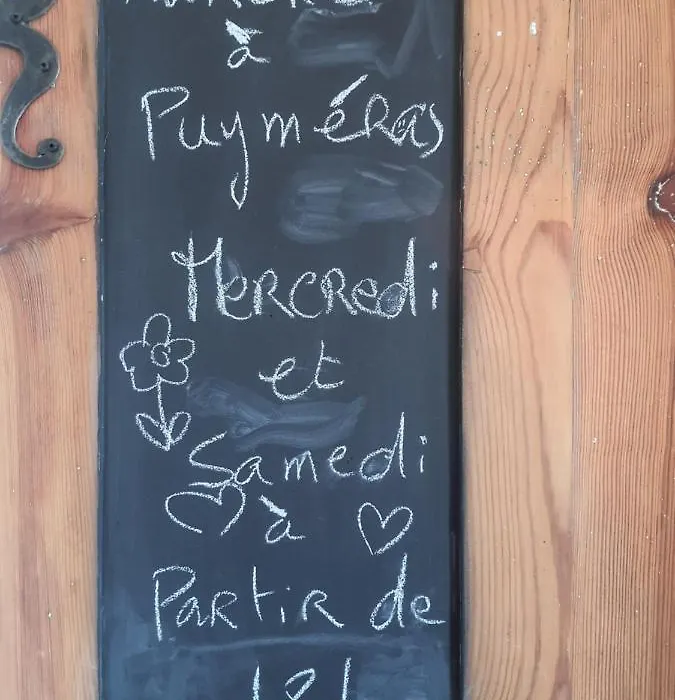 à
Puyméras
Mercredi
et
Samedi
à
Partir de